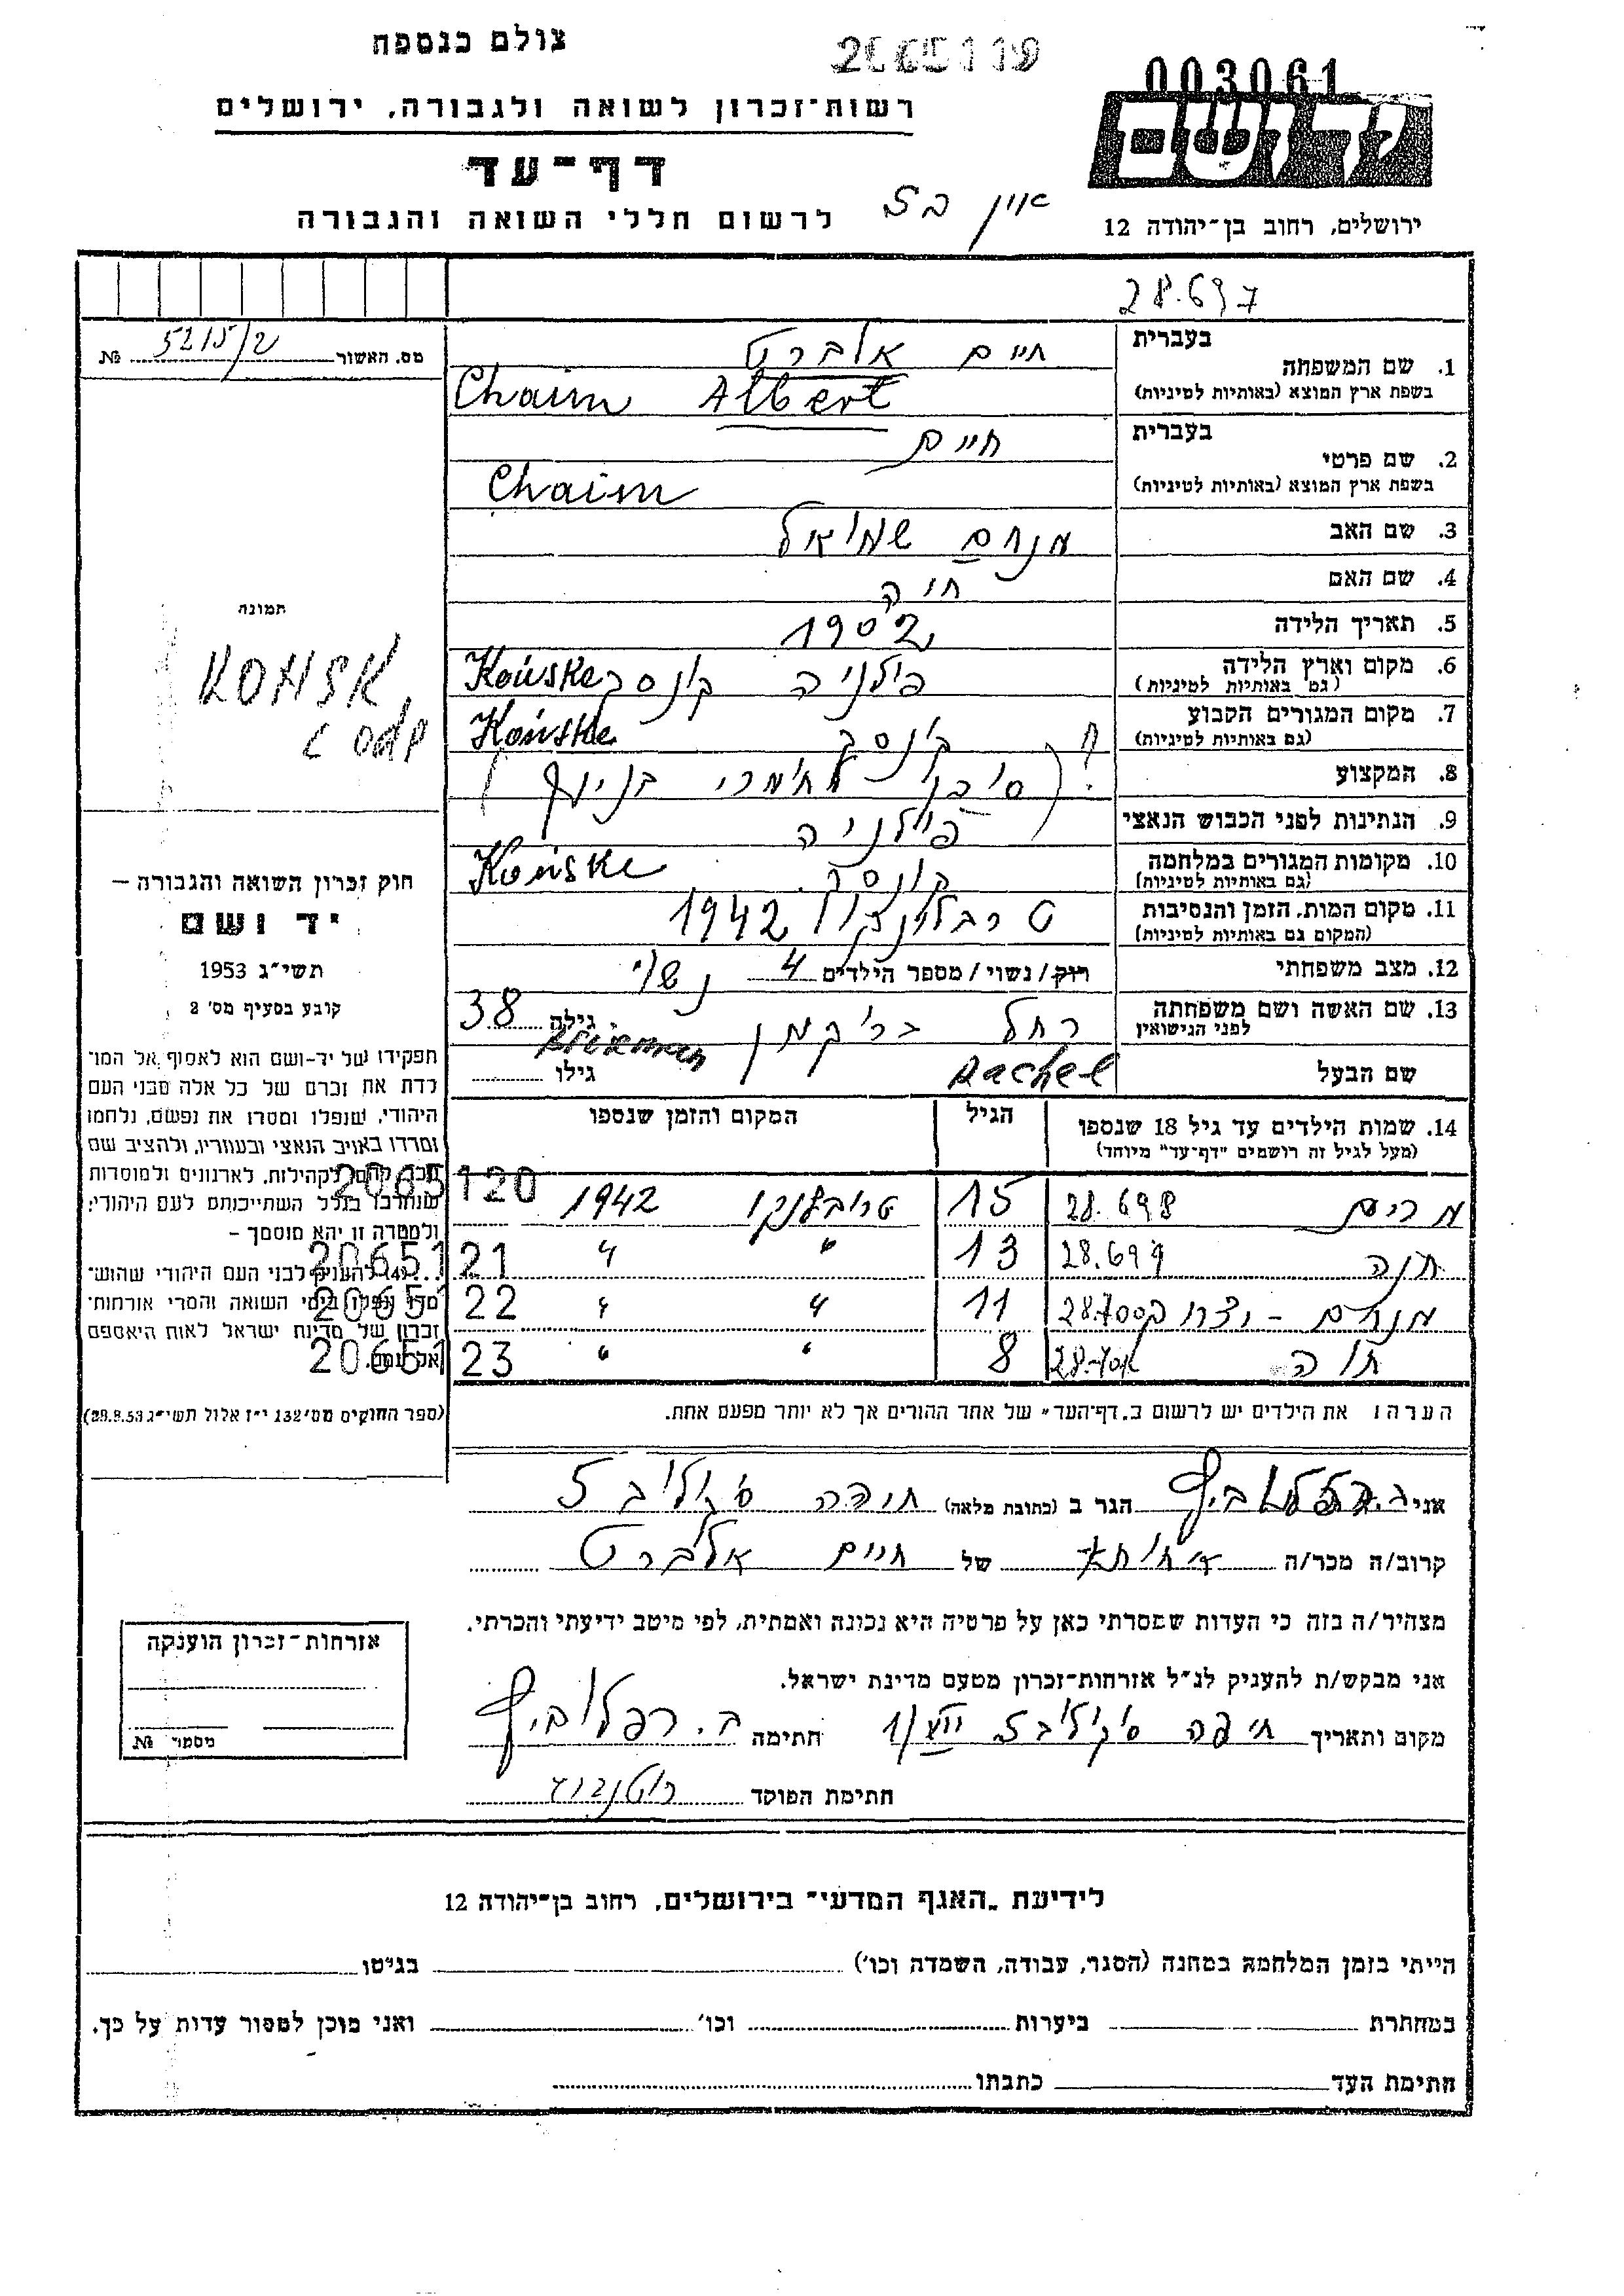 צולם כנספח
2065119
003061
רשות־זכרון לשואה ולגבורה, ירושלים
יד ושם
דף־עד
לרשום חללי השואה והגבורה
ירושלים, רחוב בן־יהודה 12
28.697
מס. האשור 5215/2 №
בעברית
1. שם המשפחה חיים אלברט
בשפת ארץ המוצא (באותיות לטיניות) Chaim Albert
בעברית חיים
2. שם פרטי
בשפת ארץ המוצא (באותיות לטיניות) Chaim
3. שם האב מנחם שמואל
4. שם האם חיה
5. תאריך הלידה 1902
6. מקום וארץ הלידה פולניה קונסק Końske
(גם באותיות לטיניות)
7. מקום המגורים הקבוע קונסק Końske
(גם באותיות לטיניות)
8. המקצוע
9. הנתינות לפני הכבוש הנאצי פולניה
10. מקומות המגורים במלחמה קונסק Końske
(גם באותיות לטיניות)
11. מקום המות, הזמן והנסיבות 1942
(המקום גם באותיות לטיניות)
12. מצב משפחתי רווק/נשוי/מספר הילדים 4 נשוי
13. שם האשה ושם משפחתה רחל בריקמן גילה 38
לפני הנישואין
שם הבעל Rachel גילו
תמונה
KONSK
חוק זכרון השואה והגבורה –
יד ושם
תשי״ג 1953
קובע בסעיף מס׳ 2
תפקידו של יד-ושם הוא לאסוף אל המו־
לדת את זכרם של כל אלה מבני העם
היהודי, שנפלו ומסרו את נפשם, נלחמו
ומרדו באויב הנאצי ובעוזריו, ולהציב שם
לקהילות, לארגונים ולמוסדות
שנחרבו בגלל השתייכותם לעם היהודי;
ולמטרה זו יהא מוסמך –
להעניק לבני העם היהודי שהוש־
בימי השואה והמרי אזרחות־
זכרון של מדינת ישראל לאות היאספם
אל עמם.
(ספר החוקים מס׳ 132 י״ז אלול תשי״ג 28.8.53)
14. שמות הילדים עד גיל 18 שנספו הגיל המקום והזמן שנספו
(מעל לגיל זה רושמים "דף־עד" מיוחד)
מרים 28.698 15 טרבלינקו 1942 2065120
חנה 28.699 13 " " 2065121
מנחם - 28.700 11 " " 2065122
חוה 28.701 8 " " 2065123
הערה: את הילדים יש לרשום ב„דף־העד" של אחד ההורים אך לא יותר מפעם אחת.
אני הגר ב (כתובת מלאה) חיפה
קרוב/ה מכר/ה של חיים אלברט
מצהיר/ה בזה כי העדות שמסרתי כאן על פרטיה היא נכונה ואמתית, לפי מיטב ידיעתי והכרתי.
אני מבקש/ת להעניק לנ״ל אזרחות־זכרון מטעם מדינת ישראל.
מקום ותאריך חיפה חתימה
חתימת הפוקד
אזרחות־זכרון הוענקה
מספר №
לידיעת „האגף המדעי" בירושלים, רחוב בן־יהודה 12
הייתי בזמן המלחמה במחנה (הסגר, עבודה, השמדה וכו׳) בגיטו
במחתרת ביערות וכו׳ ואני מוכן למסור עדות על כך.
חתימת העד כתבתו